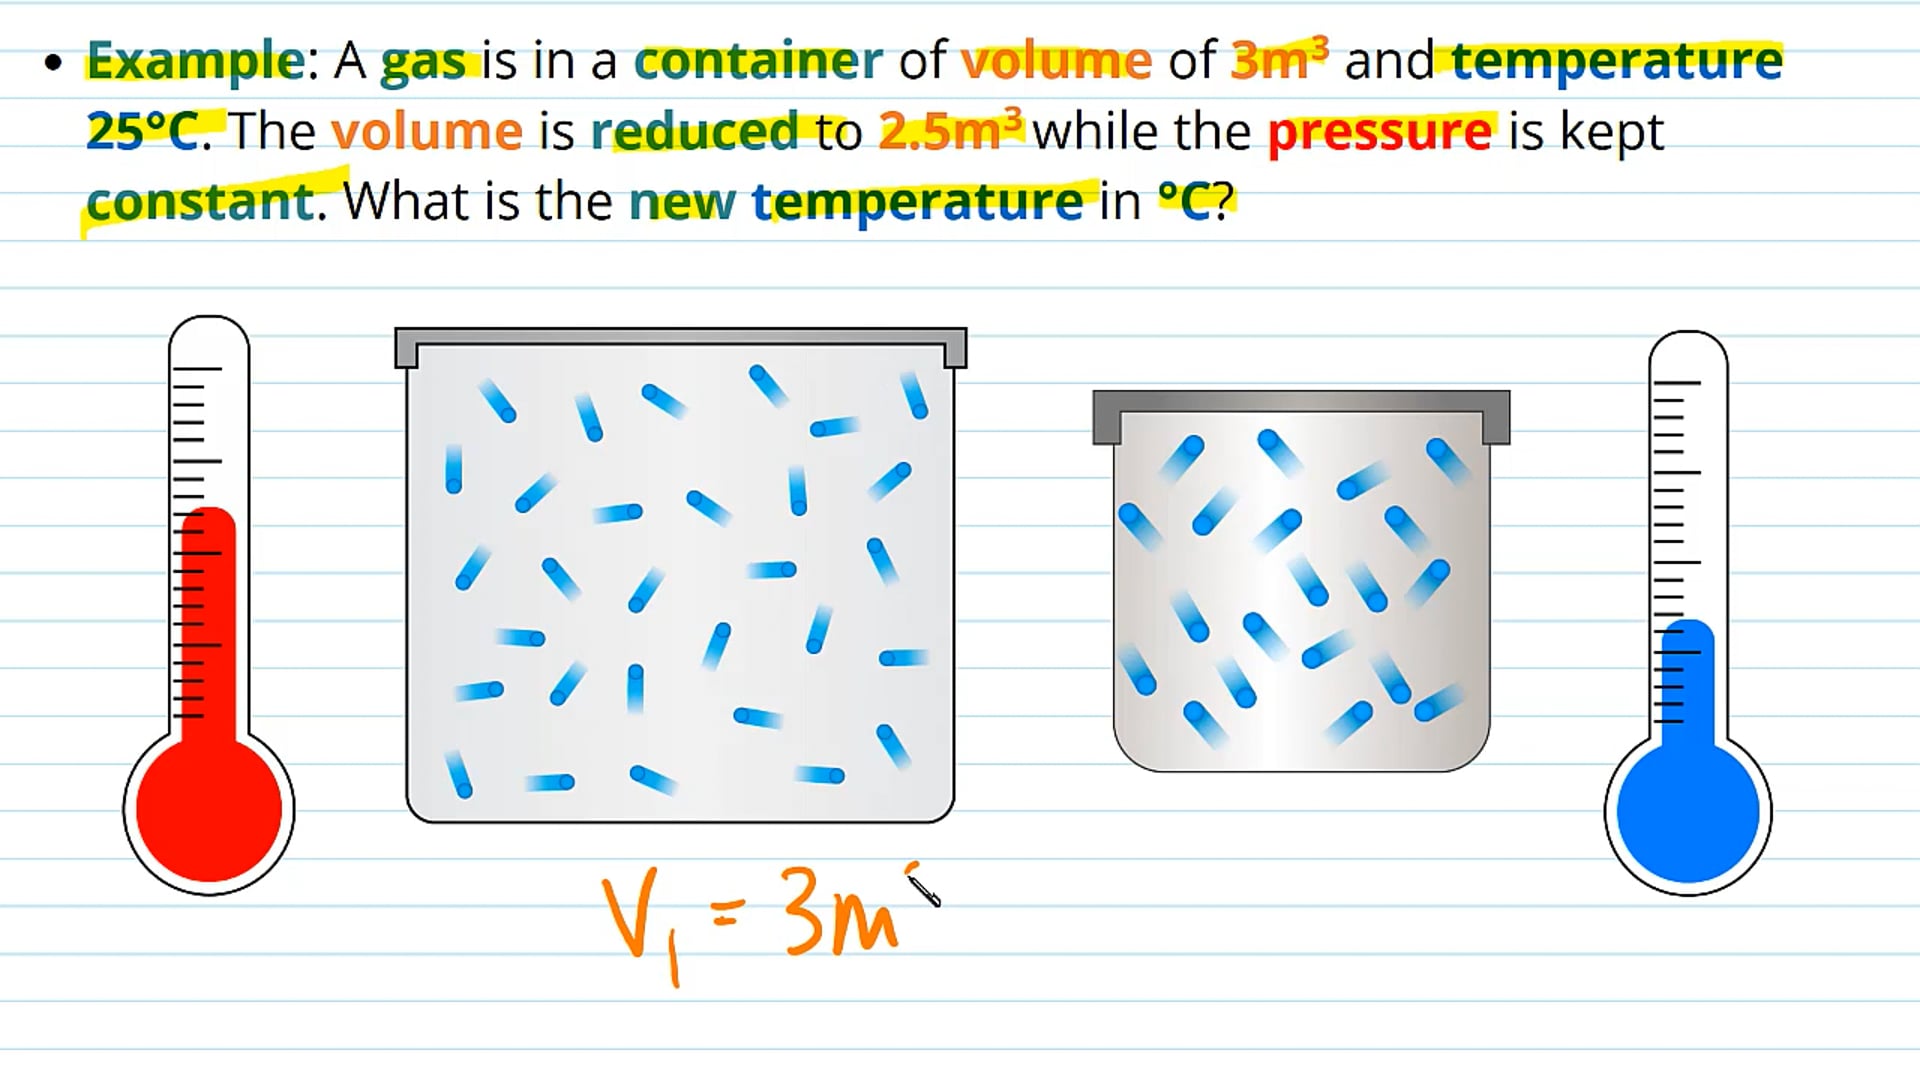 • Example: A gas is in a container of volume of 3m³ and temperature
25°C. The volume is reduced to 2.5m³ while the pressure is kept
constant. What is the new temperature in °C?
V₁ = 3m